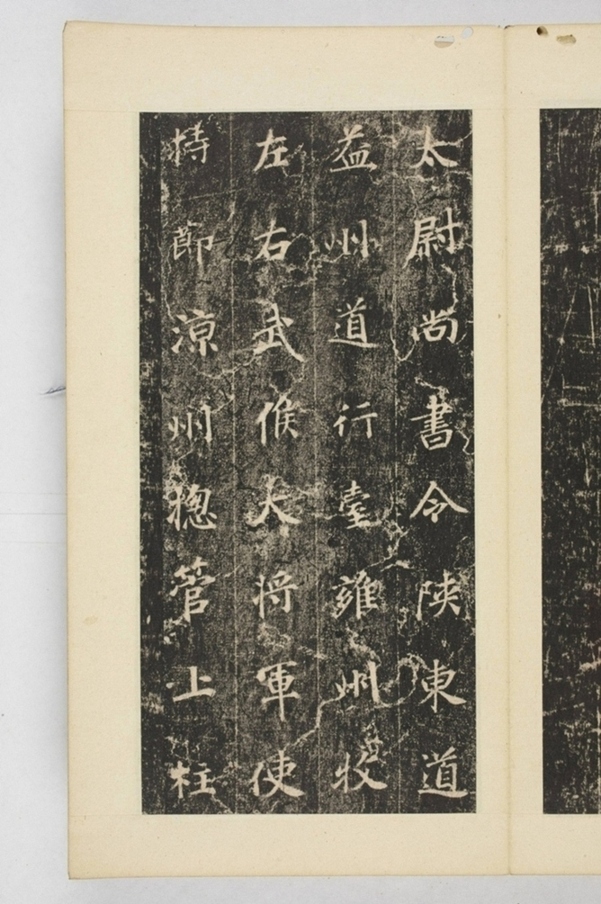 太尉尚書令陕東道
益州道行臺雍州牧
左右武候大将軍使
持節涼州揔管上柱